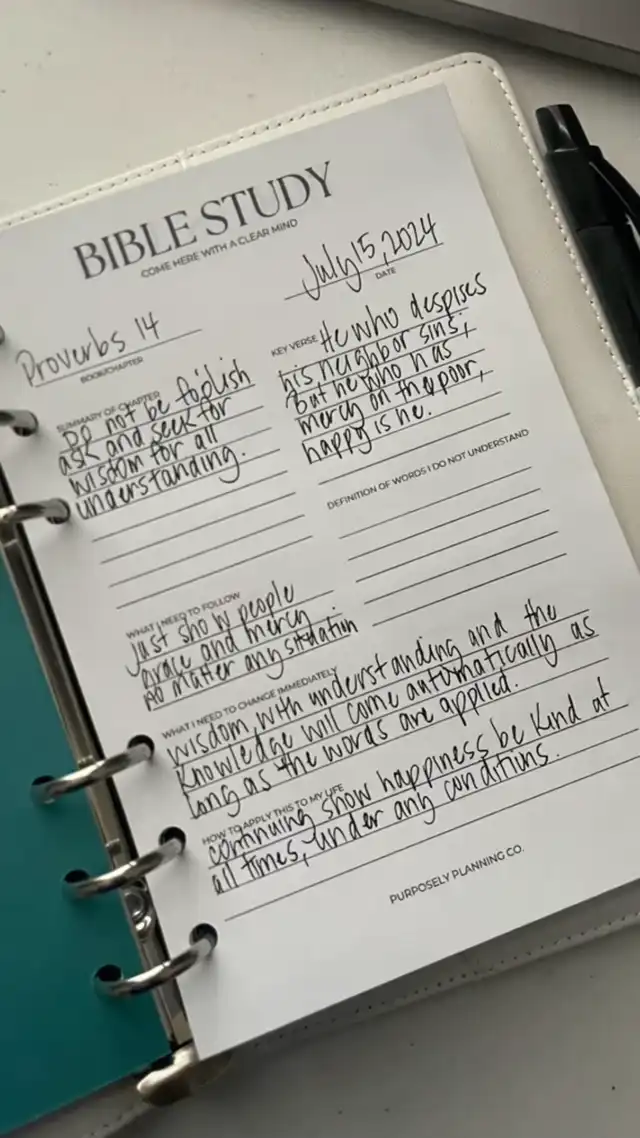 BIBLE STUDY
COME HERE WITH A CLEAR MIND
July 15, 2024
DATE
Proverbs 14
BOOK/CHAPTER
SUMMARY OF CHAPTER
Do not be foolish
ask and seek for
wisdom for all
understanding.
KEY VERSE He who despises
his neighbor sins;
But he who has
mercy on the poor,
happy is he.
DEFINITION OF WORDS I DO NOT UNDERSTAND
WHAT I NEED TO FOLLOW
Just show people
grace and mercy
no matter any situation
WHAT I NEED TO CHANGE IMMEDIATELY
wisdom with understanding and the
knowledge will come automatically as
long as the words are applied.
HOW TO APPLY THIS TO MY LIFE
continuing show happiness be kind at
all times, under any conditions.
PURPOSELY PLANNING CO.